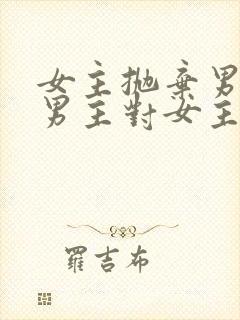 女主拋棄男
男主對女主
羅吉布